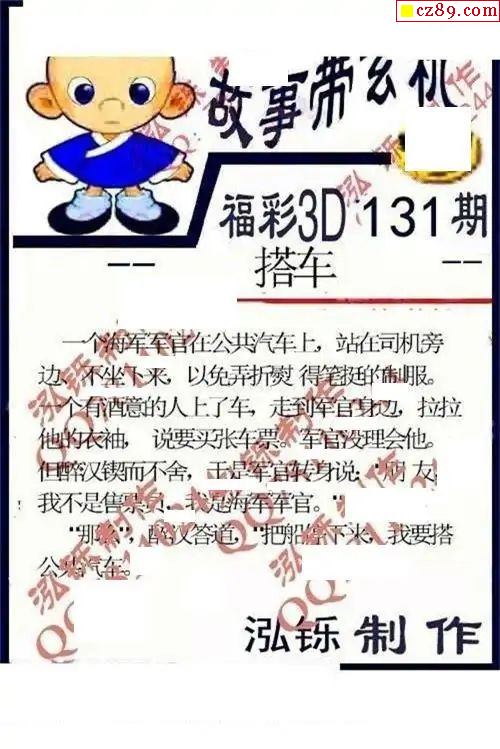 cz89.com
故事带玄机
福彩3D 131期
-- 搭车 --
一个海军军官在公共汽车上，站在司机旁
边、不坐下来，以免弄折熨 得笔挺的制服。
一个有酒意的人上了车，走到军官身边，拉拉
他的衣袖， 说要买张车票。军官没理会他。
但醉汉锲而不舍，于是军官转身说："朋 友，
我不是售票员，我是海军军官。"
"那么"，醉汉答道，"把船停下来，我要搭
公共汽车。
泓铄制作